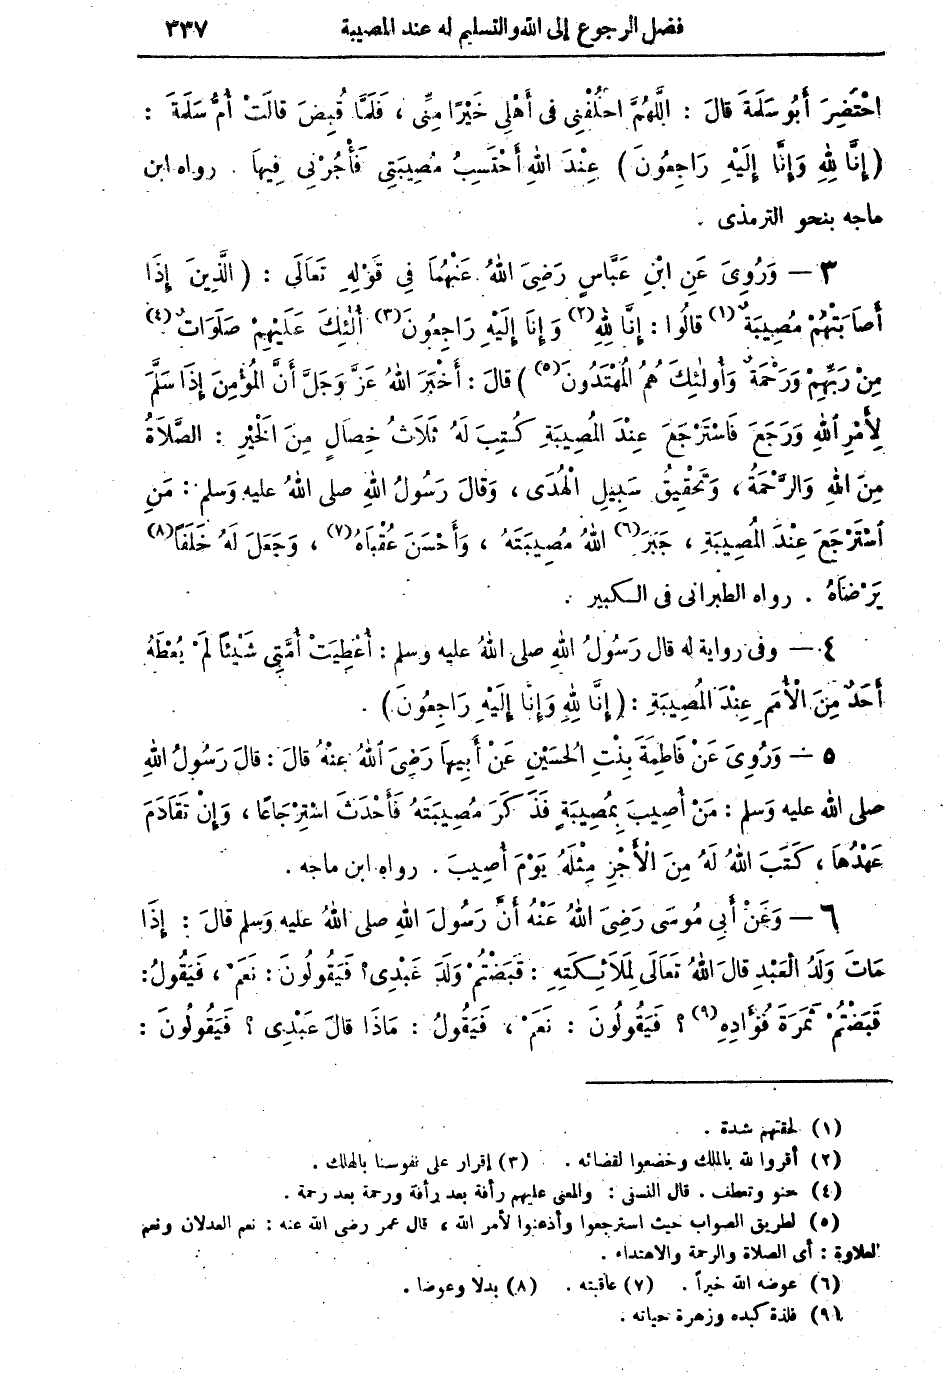 فضل الرجوع إلى الله والتسليم له عند المصيبة ٣٣٧
احْتَضِرَ أَبُو سَلَمَةَ قالَ : اللَّهُمَّ اخْلُفْنِى فى أَهْلِى خَيْرًا مِنِّى ، فَلَمَّا قُبِضَ قالَتْ أُمُّ سَلَمَةَ :
( إِنَّا لِلهِ وَإِنَّا إِلَيْهِ رَاجِعُونَ ) عِنْدَ اللهِ أَحْتَسِبُ مُصِيبَتِى فَأْجُرْنِي فِيهاَ . رواه ابن
ماجه بنحو الترمذى .
٣ — وَرُوِىَ عَنِ ابْنِ عَبَّاسٍ رَضِىَ اللهُ عَنْهُماَ فِي قَوْلِهِ تَعَالَى : ( الَّذِينَ إِذَا
أَصَابَتْهُمْ مُصِيبَةٌ (١) قالُوا : إِنَّا لِلهِ (٢) وَإِنَّا إِلَيْهِ رَاجِعُونَ (٣) أُلٰئِكَ عَلَيْهِمْ صَلَوَاتٌ (٤)
مِنْ رَبِّهِمْ وَرَحْمَةٌ وَأُولٰئِكَ هُمُ الْمُهْتَدُونَ (٥) ) قالَ : أَخْبَرَ اللهُ عَزَّ وَجَلَّ أَنَّ الْمُؤْمِنَ إِذَا سَلَّمَ
لِأَمْرِ اللهِ وَرَجَعَ فَاسْتَرْجَعَ عِنْدَ الْمُصِيبَةِ كُتِبَ لَهُ ثَلَاثُ خِصَالٍ مِنَ الْخَيْرِ : الصَّلاَةُ
مِنَ اللهِ وَالرَّحْمَةُ ، وَتَحْقِيقُ سَبِيلِ الْهُدَى ، وَقالَ رَسُولُ اللهِ صلى اللهُ عليه وَسلم : مَنِ
اسْتَرْجَعَ عِنْدَ الْمُصِيبَةِ ، جَبَرَ (٦) اللهُ مُصِيبَتَهُ ، وَأَحْسَنَ عُقْبَاهُ (٧) ، وَجَعَلَ لَهُ خَلَفاً (٨)
يَرْضاَهُ . رواه الطبرانى فى الكبير .
٤ — وفى رواية له قال رَسُولُ اللهِ صلى اللهُ عليه وسلم : أُعْطِيَتْ أُمَّتِى شَيْئاً لَمْ يُعْطَهُ
أَحَدٌ مِنَ الْأُمَمِ عِنْدَ الْمُصِيبَةِ : ( إِنَّا لِلهِ وَإِنَّا إِلَيْهِ رَاجِعُونَ ) .
٥ — وَرُوِىَ عَنْ فَاطِمَةَ بِنْتِ الْحُسَيْنِ عَنْ أَبِيهاَ رَضِىَ اللهُ عنهُ قالَ : قالَ رَسُولُ اللهِ
صلى الله عليه وَسلم : مَنْ أُصِيبَ بِمُصِيبَةٍ فَذَكَرَ مُصِيبَتَهُ فَأَحْدَثَ اسْتِرْجَاعًا ، وَإِنْ تَقَادَمَ
عَهْدُهاَ ، كَتَبَ اللهُ لَهُ مِنَ الْأَجْرِ مِثْلَهُ يَوْمَ أُصِيبَ . رواه ابن ماجه .
٦ — وَعَنْ أَبِي مُوسَى رَضِىَ اللهُ عَنْهُ أَنَّ رَسُولَ اللهِ صلى اللهُ عليه وَسلم قالَ : إِذَا
مَاتَ وَلَدُ الْعَبْدِ قالَ اللهُ تَعَالَى لِمَلاَئِكَتِهِ : قَبَضْتُمْ وَلَدَ عَبْدِى؟ فَيَقُولُونَ : نَعَمْ ، فَيَقُولُ :
قَبَضْتُمْ ثَمَرَةَ فُؤَادِهِ (٩) ؟ فَيَقُولُونَ : نَعَمْ ، فَيَقُولُ : مَاذَا قالَ عَبْدِى ؟ فَيَقُولُونَ :
(١) لحقتهم شدة .
(٢) أقروا لله بالملك وخضعوا لقضائه . (٣) إقرار على نفوسنا بالهلك .
(٤) حنو وتعطف . قال النسفى : والمعنى عليهم رأفة بعد رأفة ورحمة بعد رحمة .
(٥) لطريق الصواب حيث استرجعوا وأذعنوا لأمر الله ، قال عمر رضى الله عنه : نعم العدلان ونعم
العلاوة : أى الصلاة والرحمة والاهتداء .
(٦) عوضه الله خيراً . (٧) عاقبته . (٨) بدلا وعوضا .
(٩) فلذة كبده وزهرة حياته .